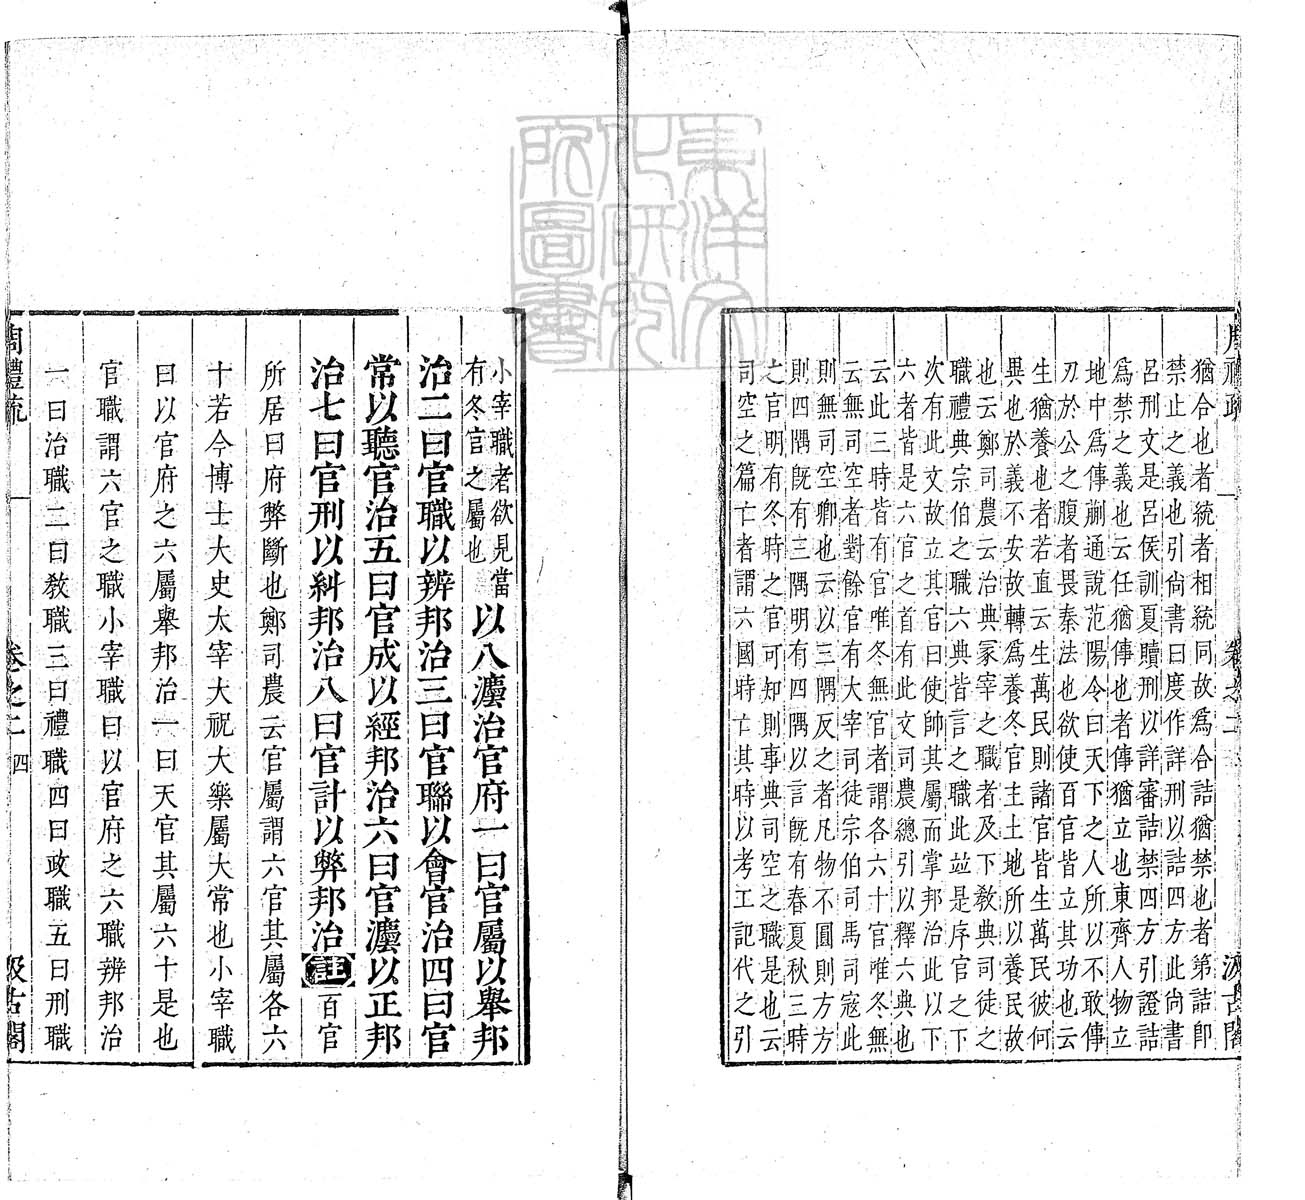 周禮疏 卷之二 汲古閣
猶合也者統者相統同故爲合詰猶禁也者第詰卽
禁止之義也引尙書曰度作詳刑以詰四方此尙書
呂刑文是呂侯訓夏贖刑以詳審詰禁四方引證詰
爲禁之義也云任猶傳也者傳猶立也東齊人物立
地中爲傳蒯通說范陽令曰天下之人所以不敢傳
刃於公之腹者畏秦法也欲使百官皆立其功也云
生猶養也者若直云生萬民則諸官皆生萬民彼何
異也於義不安故轉爲養冬官主土地所以養民故
也云鄭司農云治典冢宰之職者及下敎典司徒之
職禮典宗伯之職六典皆言之職此竝是序官之下
次有此文故立其官曰使帥其屬而掌邦治此以下
六者皆是六官之首有此文司農總引以釋六典也
云此三時皆有官唯冬無官者謂各六十官唯冬無
云無司空者對餘官有大宰司徒宗伯司馬司寇此
則無司空卿也云以三隅反之者凡物不圓則方方
則四隅旣有三隅明有四隅以言旣有春夏秋三時
之官明有冬時之官可知則事典司空之職是也云
司空之篇亡者謂六國時亡其時以考工記代之引
小宰職者欲見當
有冬官之屬也
以八灋治官府一曰官屬以舉邦
治二曰官職以辨邦治三曰官聯以會官治四曰官
常以聽官治五曰官成以經邦治六曰官灋以正邦
治七曰官刑以糾邦治八曰官計以弊邦治註百官
所居曰府弊斷也鄭司農云官屬謂六官其屬各六
十若今博士大史大宰大祝大樂屬大常也小宰職
曰以官府之六屬舉邦治一曰天官其屬六十是也
官職謂六官之職小宰職曰以官府之六職辨邦治
一曰治職二曰敎職三曰禮職四曰政職五曰刑職
周禮疏 卷之二 四 汲古閣
東洋文
化研究
所圖書